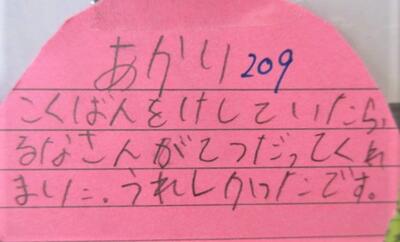 あかり 209
こくばんをけしていたら、
るなさんがてつだってくれ
ました。うれしかったです。